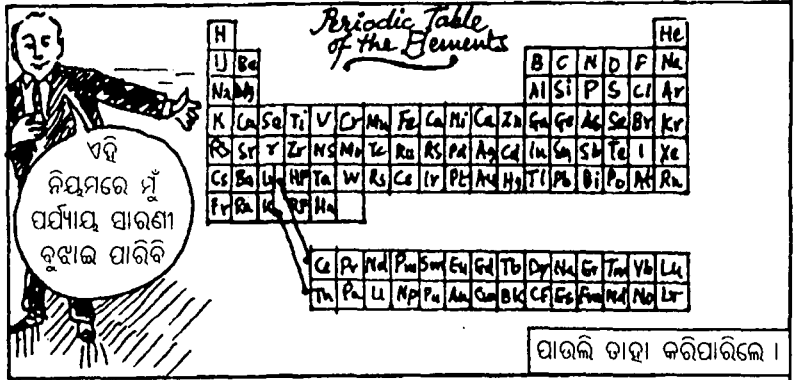 Periodic Table
of the Elements
H He
Li Be B C N O F Ne
Na Mg Al Si P S Cl Ar
K Ca Sc Ti V Cr Mn Fe Co Ni Cu Zn Ga Ge As Se Br Kr
Rb Sr Y Zr Nb Mo Tc Ru Rh Pd Ag Cd In Sn Sb Te I Xe
Cs Ba La Hf Ta W Ir Pt Au Hg Tl Pb Bi Po At Rn
Fr Ra Rf Ha
Ce Pr Nd Pm Sm Eu Gd Tb Dy Ho Er Tm Yb Lu
Th Pa U Np Pu Am Cm Bk Cf Es Fm Md No Lr
ଏହି
ନିୟମରେ ମୁଁ
ପର୍ଯ୍ୟାୟ ସାରଣୀ
ବୁଝାଇ ପାରିବି
ପାଉଲି ତାହା କରିପାରିଲେ ।